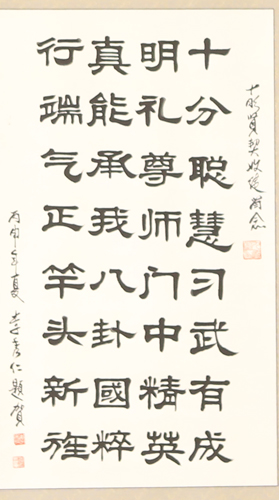 十分聪慧习武有成
明礼尊师门中精英
真能承我八卦國粹
行端气正竿头新旌
丙申年夏 李秀仁題賀